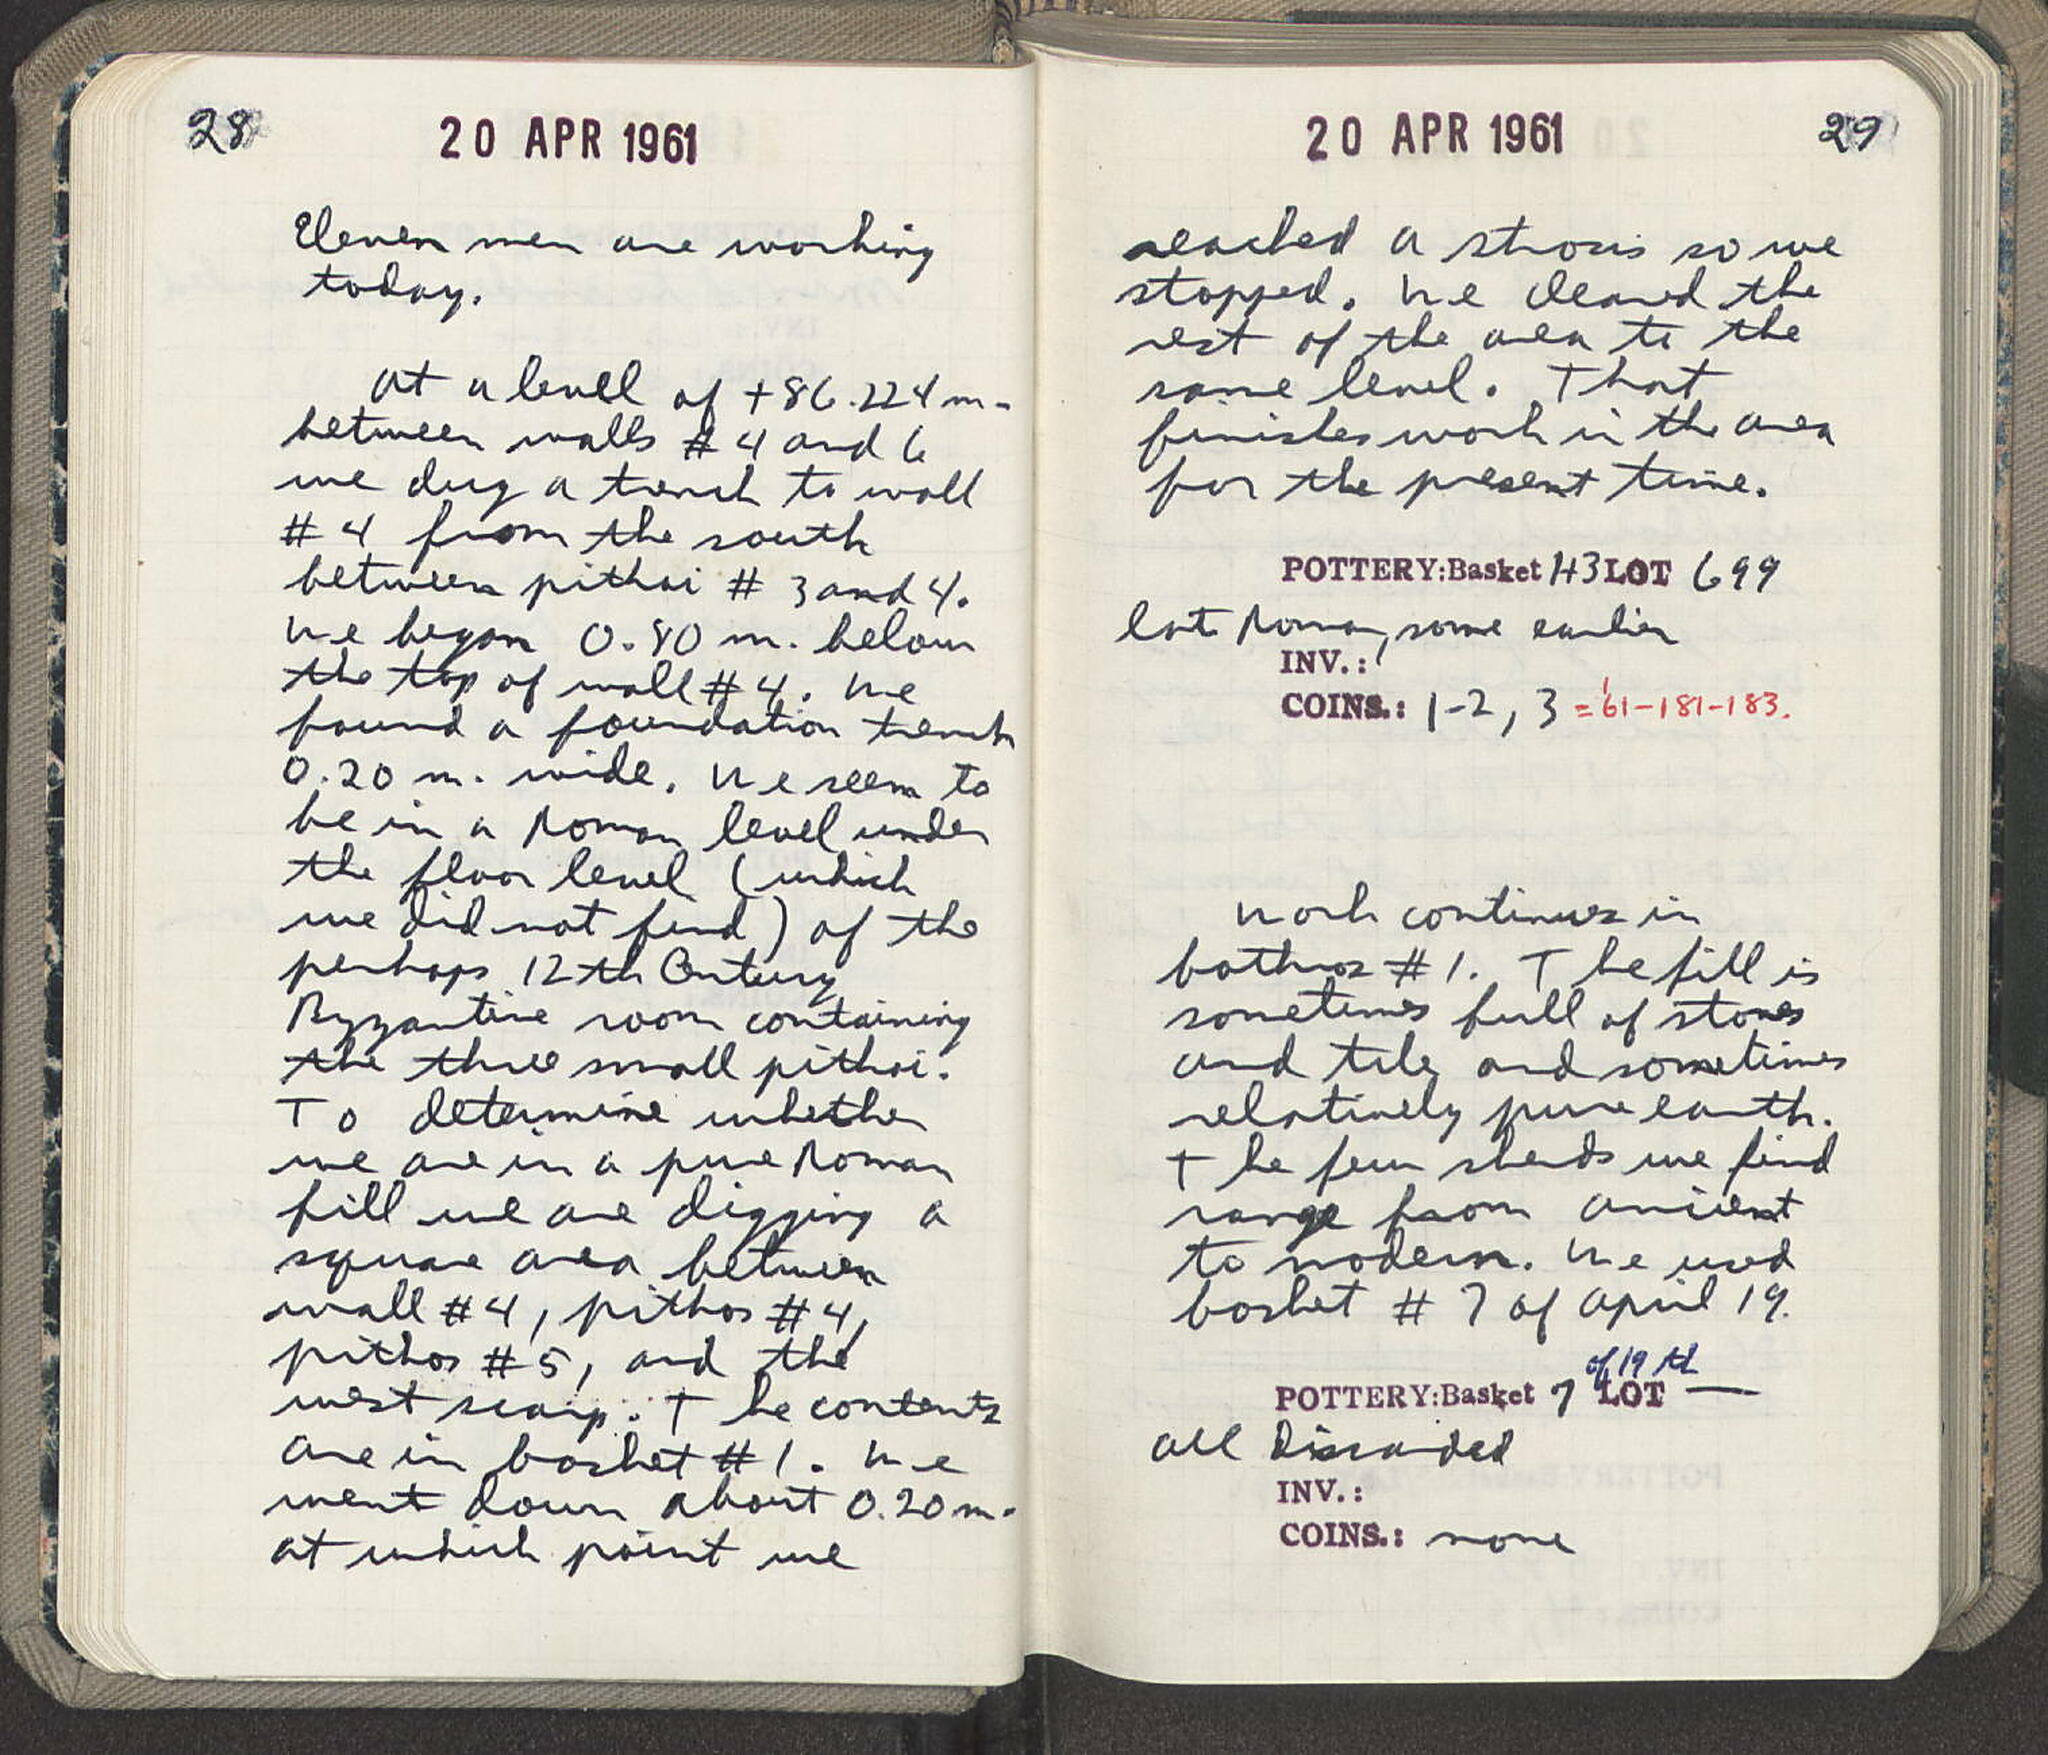 28
20 APR 1961
Eleven men are working
today.
At a level of +86.224 m.
between walls #4 and 6
we dug a trench to wall
#4 from the south
between pithoi # 3 and 4.
We began 0.80 m. below
the top of wall #4. We
found a foundation trench
0.20 m. wide. We seem to
be in a Roman level under
the floor level (which
we did not find) of the
perhaps 12th Century
Byzantine room containing
the three small pithoi.
To determine whether
we are in a pure Roman
fill we are digging a
square area between
wall #4, pithos #4,
pithos #5, and the
west scarp. The contents
are in basket #1. We
went down about 0.20 m.
at which point we
20 APR 1961
29
reached a strosis so we
stopped. We cleared the
rest of the area to the
same level. That
finishes work in the area
for the present time.
POTTERY:Basket LOT 699
late Roman, some earlier
INV.:
COINS.: 1-2, 3 = '61-181-183.
Work continues in
bothros #1. The fill is
sometimes full of stones
and tile and sometimes
relatively pure earth.
The few sherds we find
range from ancient
to modern. We used
basket # 7 of April 19.
of 19 th
POTTERY:Basket 7 LOT —
all Discarded
INV.:
COINS.: none